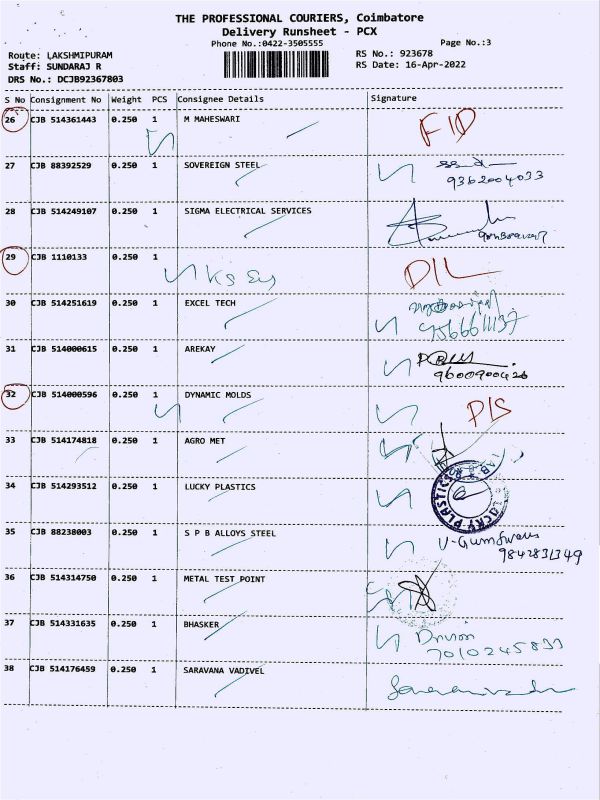 THE PROFESSIONAL COURIERS, Coimbatore
Delivery Runsheet - PCX
Phone No.:0422-3505555
Page No.:3
Route: LAKSHMIPURAM
Staff: SUNDARAJ R
DRS No.: DCJB92367803
RS No.: 923678
RS Date: 16-Apr-2022
S No Consignment No Weight PCS Consignee Details Signature
26 CJB 514361443 0.250 1 M MAHESWARI
27 CJB 88392529 0.250 1 SOVEREIGN STEEL
9362004033
28 CJB 514249107 0.250 1 SIGMA ELECTRICAL SERVICES
29 CJB 1110133 0.250 1
DIL
30 CJB 514251619 0.250 1 EXCEL TECH
31 CJB 514000615 0.250 1 AREKAY
9600900426
32 CJB 514000596 0.250 1 DYNAMIC MOLDS
33 CJB 514174818 0.250 1 AGRO MET
34 CJB 514293512 0.250 1 LUCKY PLASTICS
LUCKY PLASTICS
35 CJB 88238003 0.250 1 S P B ALLOYS STEEL
9842831349
36 CJB 514314750 0.250 1 METAL TEST POINT
37 CJB 514331635 0.250 1 BHASKER
7010245833
38 CJB 514176459 0.250 1 SARAVANA VADIVEL